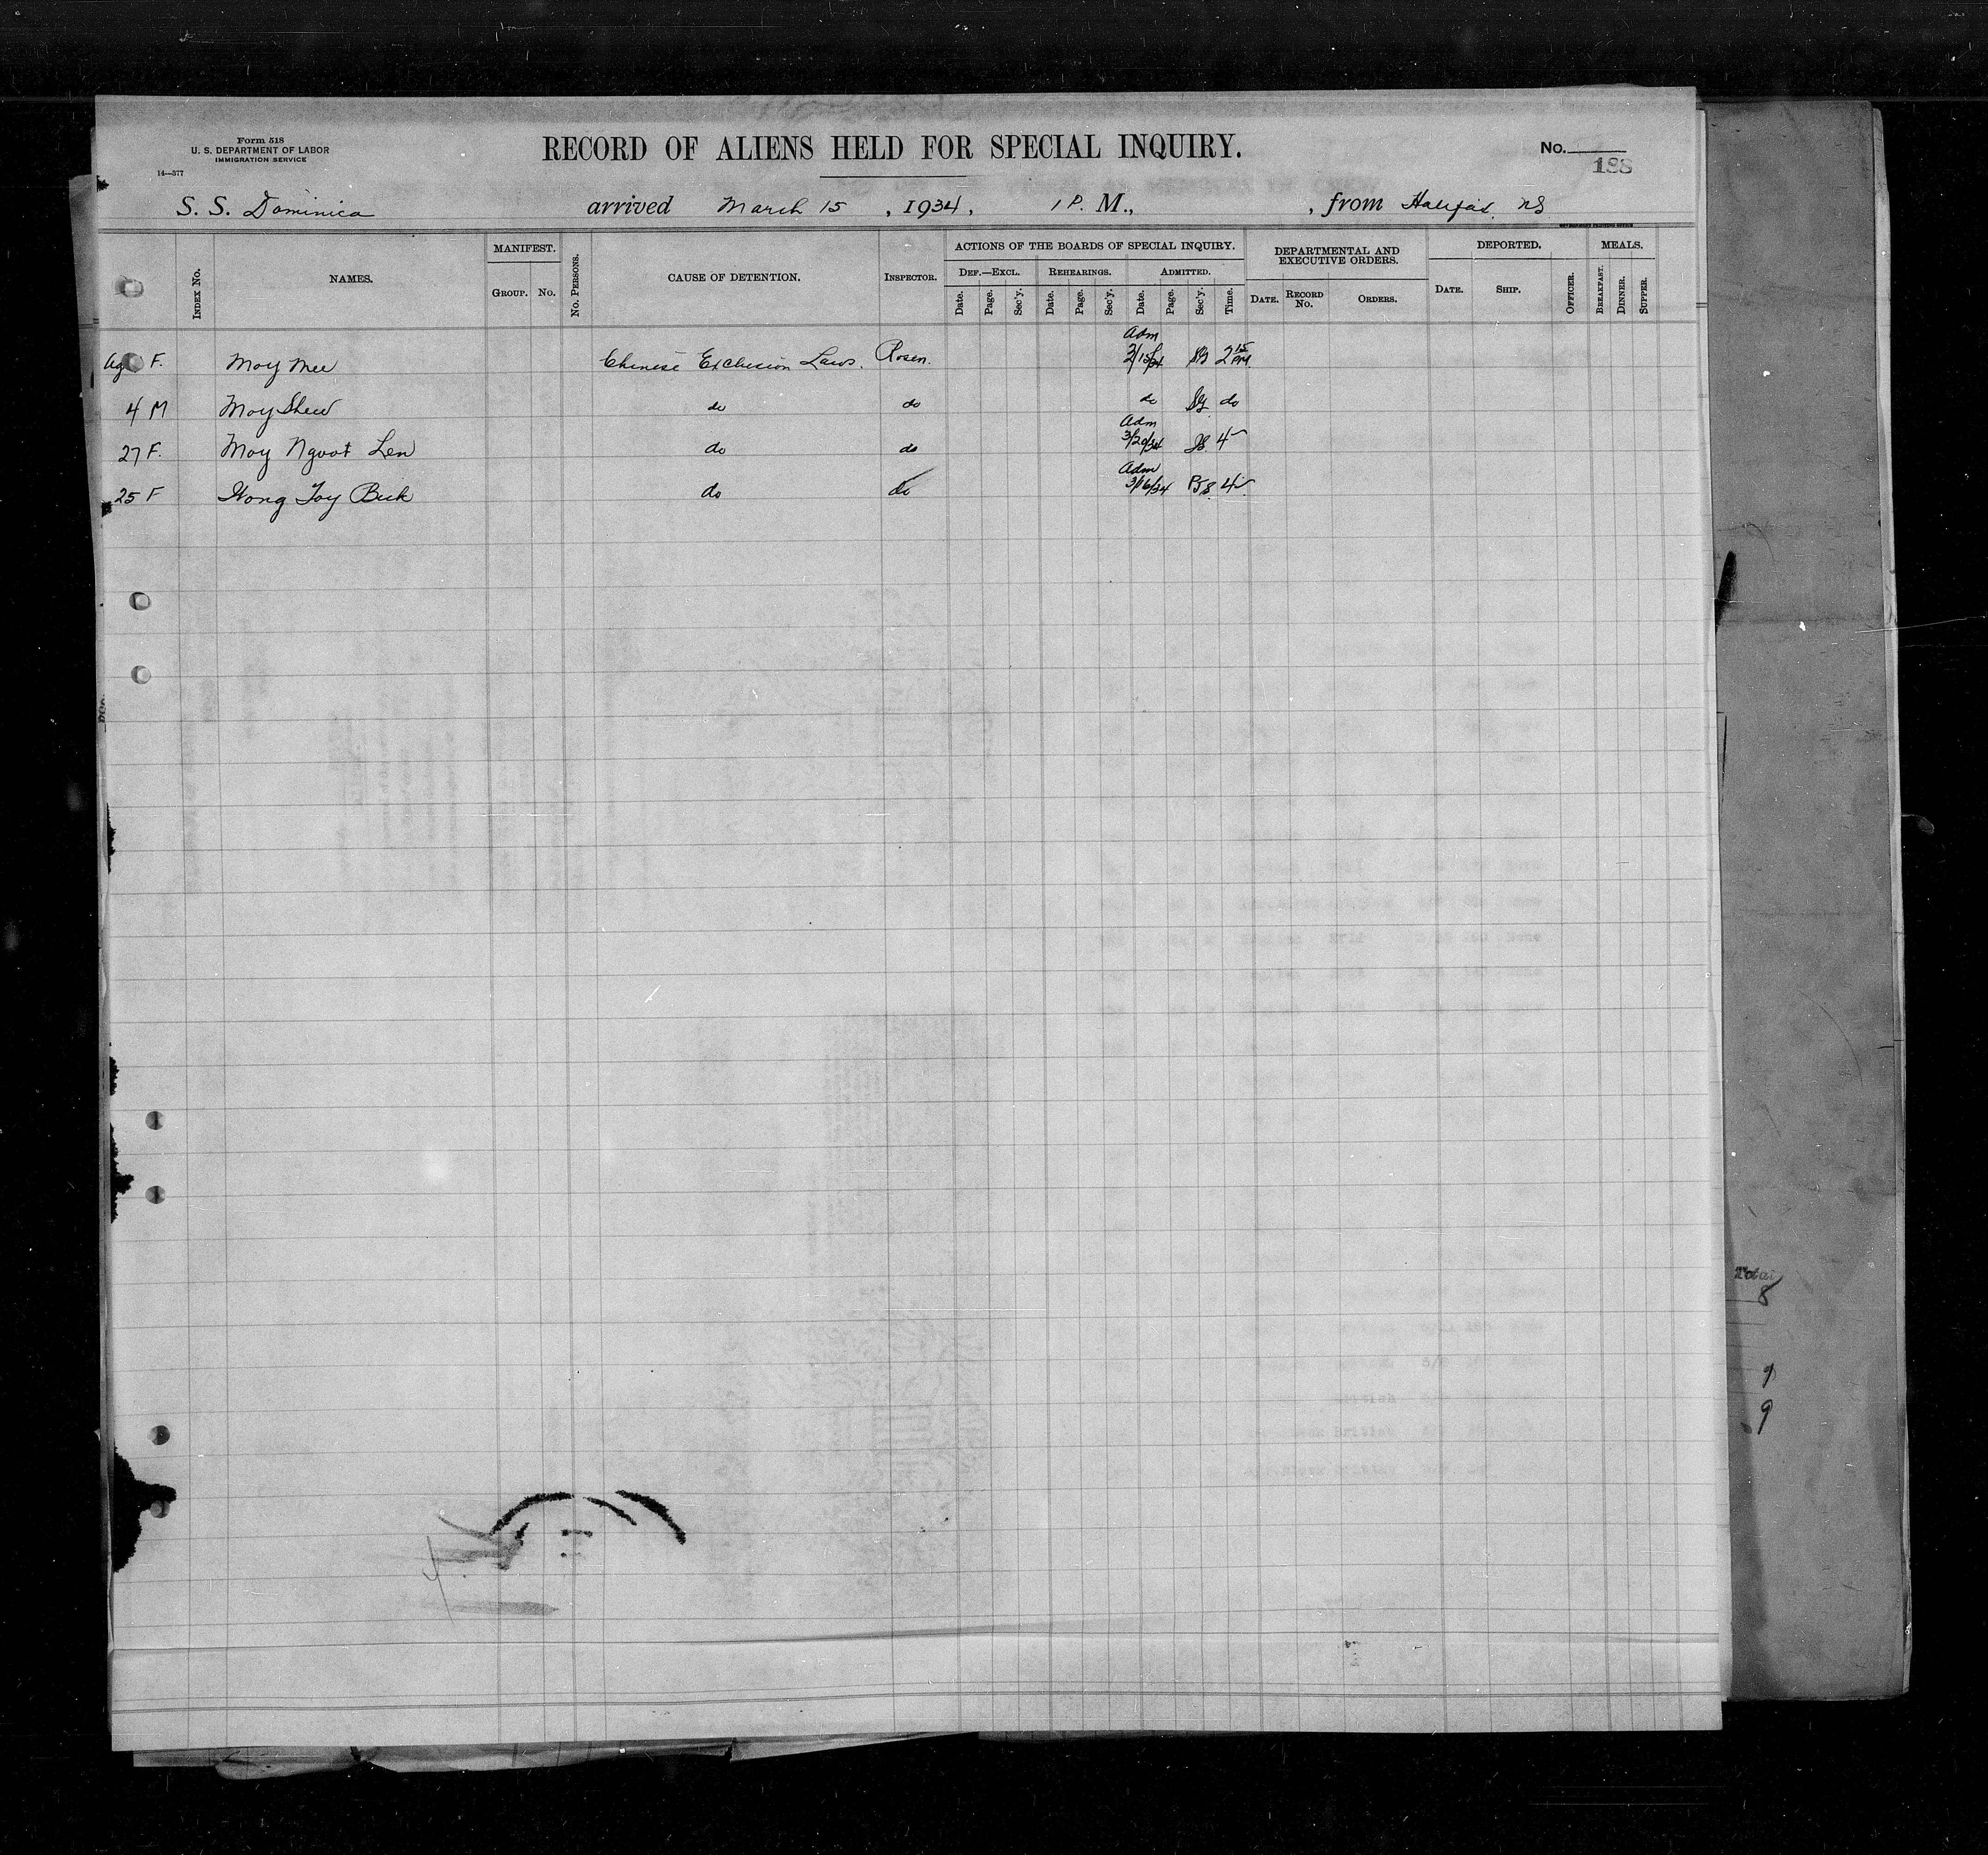 Form 518
U. S. DEPARTMENT OF LABOR
IMMIGRATION SERVICE
14—377
RECORD OF ALIENS HELD FOR SPECIAL INQUIRY.
No.
188
S. S. Dominica arrived March 15, 1934, 1 P. M., , from Halifax, NS
GOVERNMENT PRINTING OFFICE
INDEX No. NAMES. MANIFEST. GROUP. No. No. PERSONS. CAUSE OF DETENTION. INSPECTOR.
ACTIONS OF THE BOARDS OF SPECIAL INQUIRY.
DEF.—EXCL. Date. Page. Sec'y. REHEARINGS. Date. Page. Sec'y. ADMITTED. Date. Page. Sec'y. Time.
DEPARTMENTAL AND EXECUTIVE ORDERS. DATE. RECORD No. ORDERS.
DEPORTED. DATE. SHIP. OFFICER. MEALS. BREAKFAST. DINNER. SUPPER.
F. Moy Mee Chinese Exclusion Laws. Rosen. Adm 3/15/34 2 15 PM.
4 M Moy Shew do do do do
27 F. Moy Nguot Len do do Adm 3/20/34 4
25 F Wong Toy Buk do do Adm 3/16/34 4
Total
8
1
9